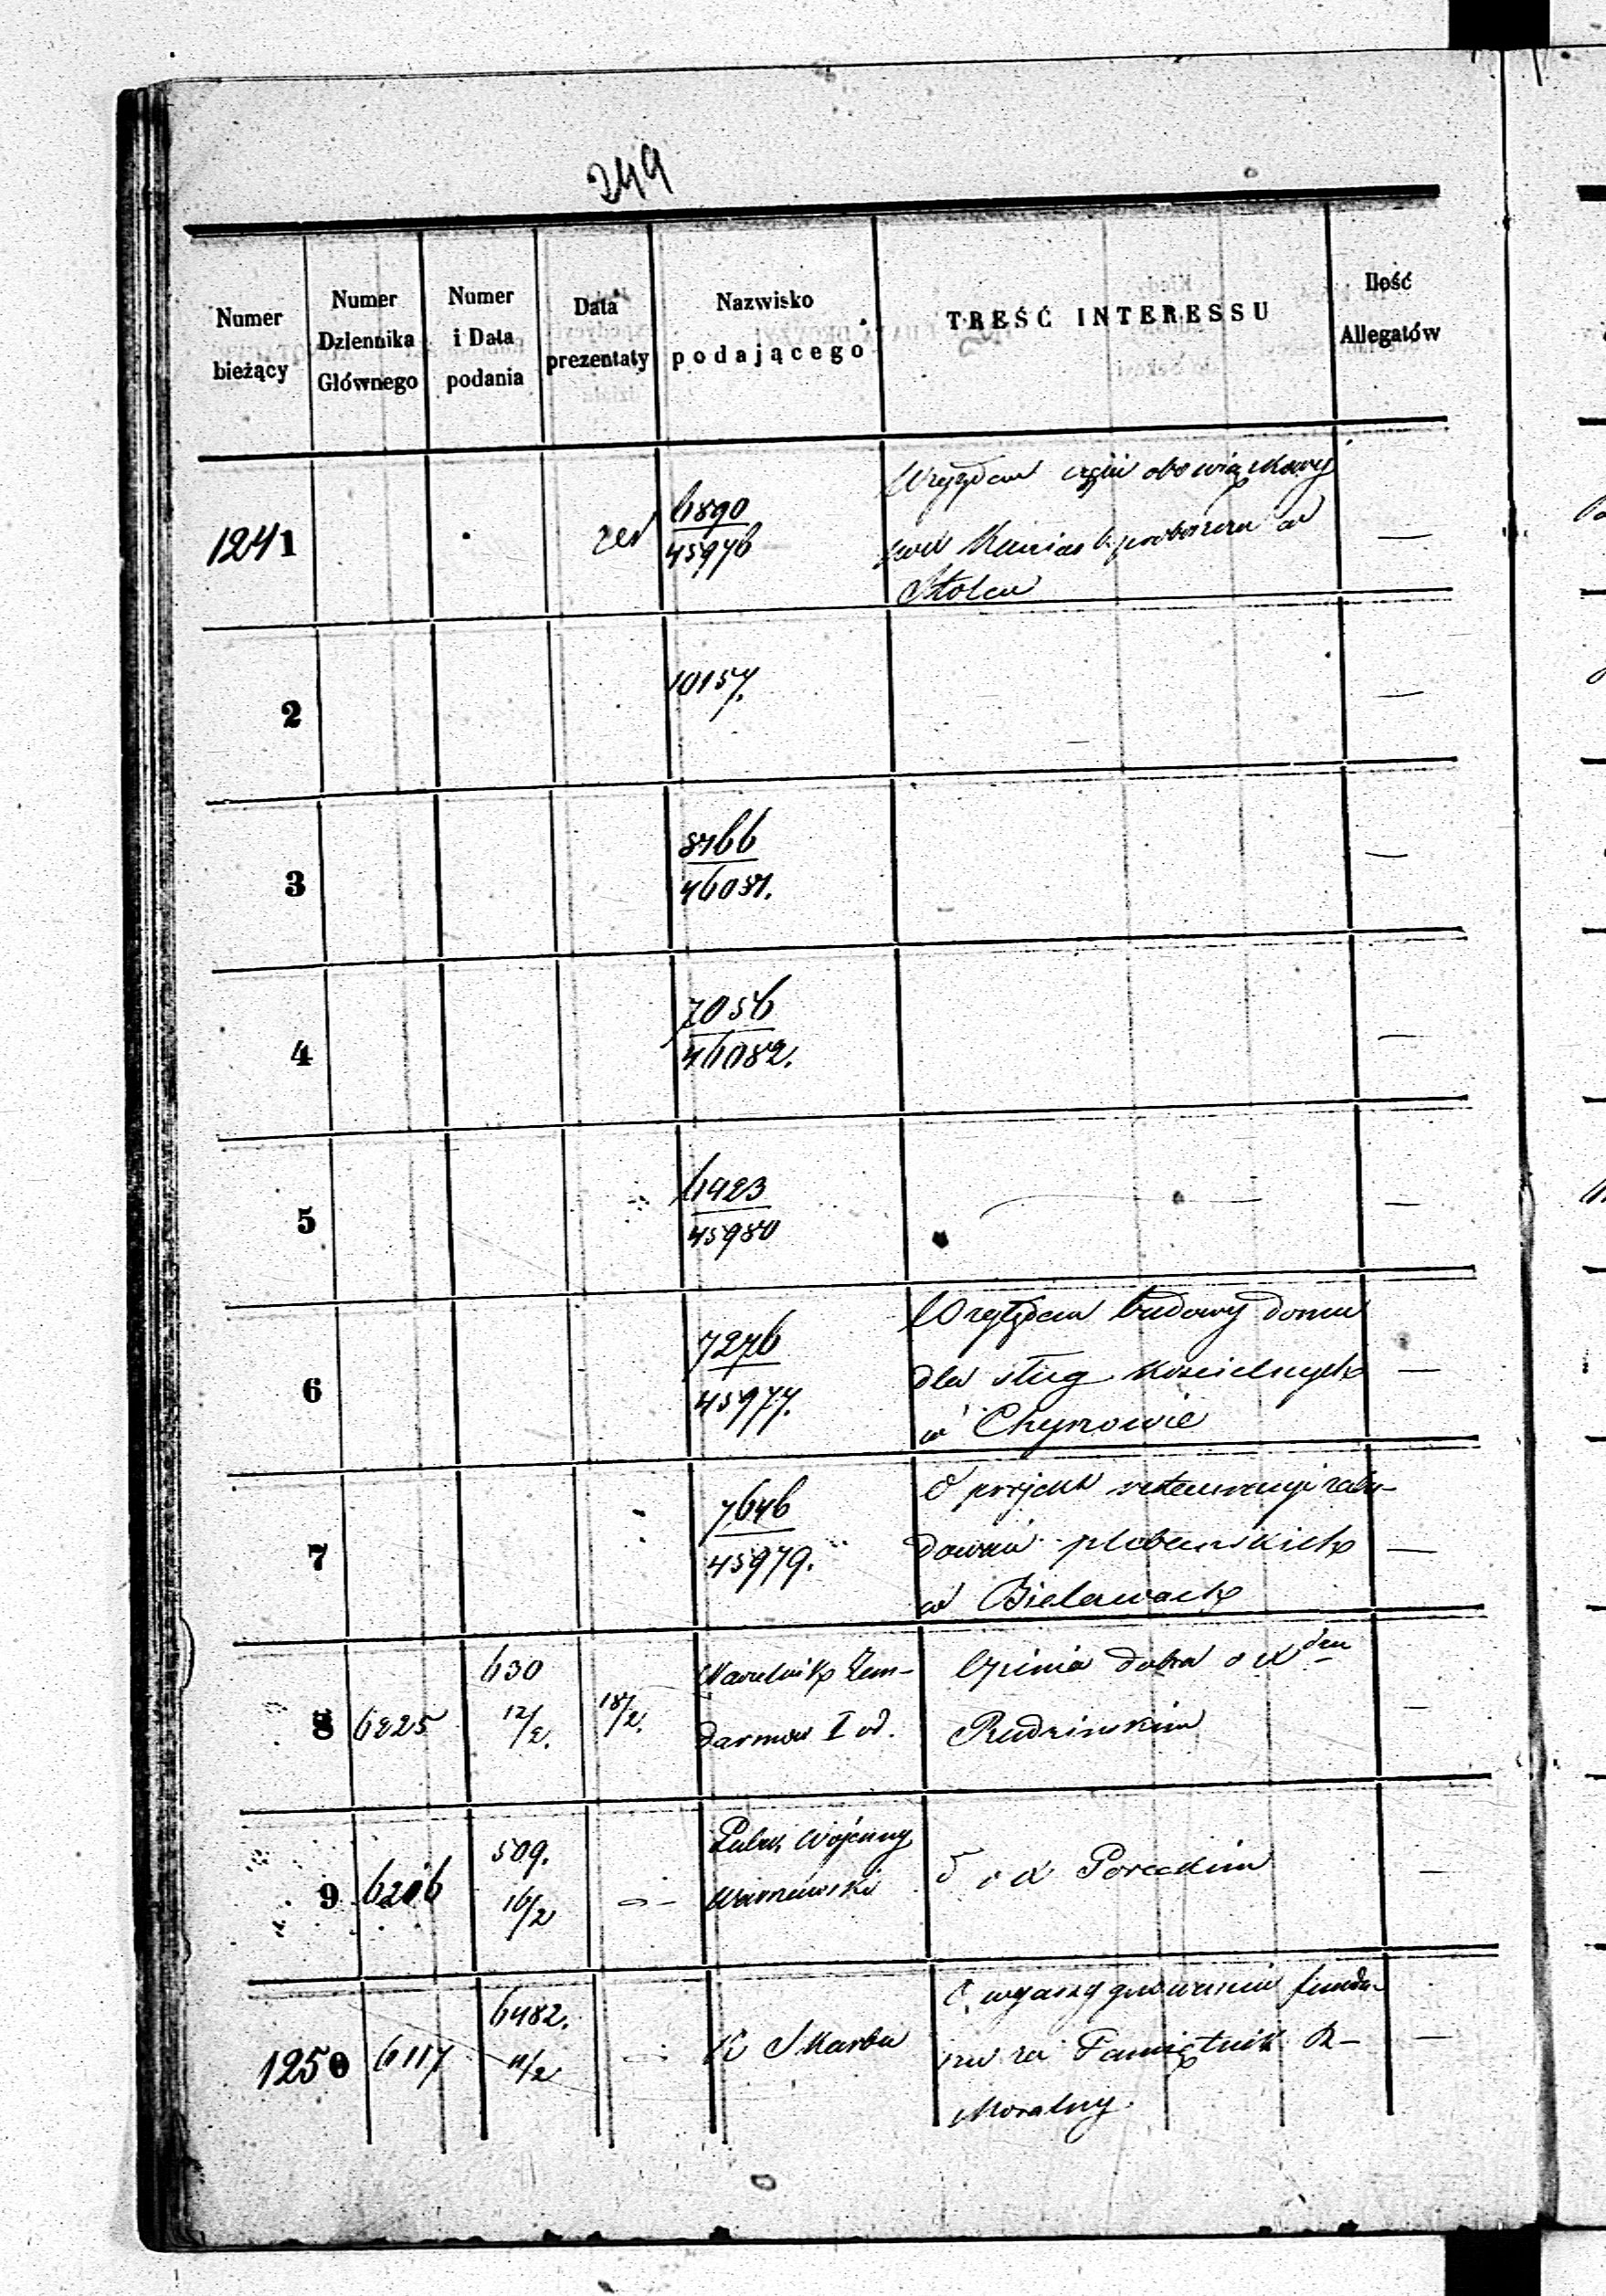 249
Numer bieżący
Numer Dziennika Głównego
Numer i Data podania
Data prezentaty
Nazwisko podającego
TREŚĆ INTERESSU
Ilość Allegatów
1241
6890
45976
Względem części obowiązkowej
proboszcza w
Stolcu
—
2
10157.
—
3
8766
46031.
—
4
7056
46082.
—
5
6423
45980
—
6
7276
45977.
Względem budowy domu
dla sług kościelnych
w Chynowie
—
7
7646
45979.
O projekt restauracyi zabu-
dowań plebańskich
w Bielawach
—
8
6225
630
12/2.
18/2.
Naczelnik Żan-
darmów I od.
Opinia dobra o X
Rudzińskim
—
9
6206
509.
16/2
Wojenny
Warszawski
o X Poreckim
—
1250
6117
6482.
11/2
K Skarbu
O wyassygnowanie fundu-
szu za Pamiętnik R-
Moralny.
—